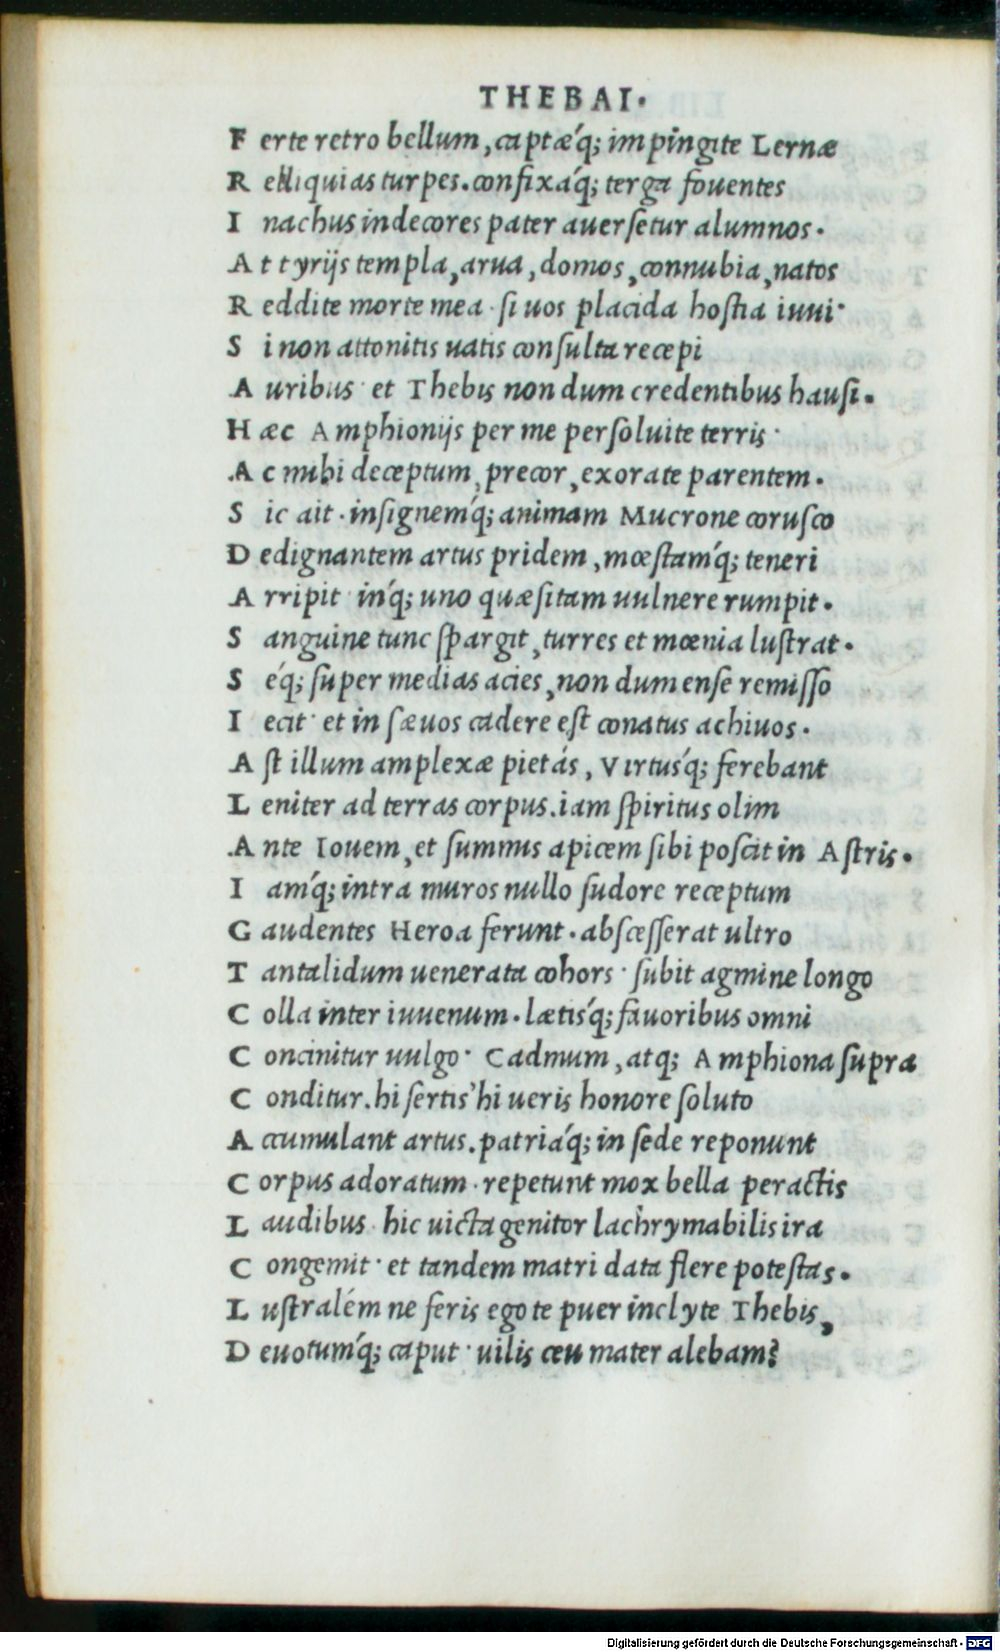 THEBAI.
F erte retro bellum, captæq́; impingite Lernæ
R elliquias turpes. confixaq́; terga fouentes
I nachus indecores pater auersetur alumnos.
A t tyrijs templa, arua, domos, connubia, natos
R eddite morte mea · si uos placida hostia iuui·
S i non attonitis uatis consulta recepi
A uribus · et Thebis non dum credentibus hausi.
H æc Amphionijs per me persoluite terris·
A c mihi deceptum, precor, exorate parentem.
S ic ait · insignemq́; animam Mucrone corusco
D edignantem artus pridem, mœstamq́; teneri
A rripit · inq́; uno quæsitam uulnere rumpit.
S anguine tunc spargit, turres et mœnia lustrat.
S éq; super medias acies, non dum ense remisso
I ecit· et in sæuos cadere est conatus achiuos.
A st illum amplexæ pietás, Virtusq́; ferebant
L eniter ad terras corpus. iam spiritus olim
A nte Iouem, et summus apicem sibi poscit in Astris.
I amq́; intra muros nullo sudore receptum
G audentes Heroa ferunt. abscesserat ultro
T antalidum uenerata cohors · subit agmine longo
C olla inter iuuenum. lætisq́; fauoribus omni
C oncinitur uulgo· Cadmum, atq; Amphiona supra
C onditur. hi sertis' hi ueris honore soluto
A ccumulant artus. patriaq́; in sede reponunt
C orpus adoratum · repetunt mox bella peractis
L audibus · hic uicta genitor lachrymabilis ira
C ongemit · et tandem matri data flere potestas.
L ustralém ne feris ego te puer inclyte Thebis,
D euotumq́; caput · uilis ceu mater alebam?
Digitalisierung gefördert durch die Deutsche Forschungsgemeinschaft - DFG